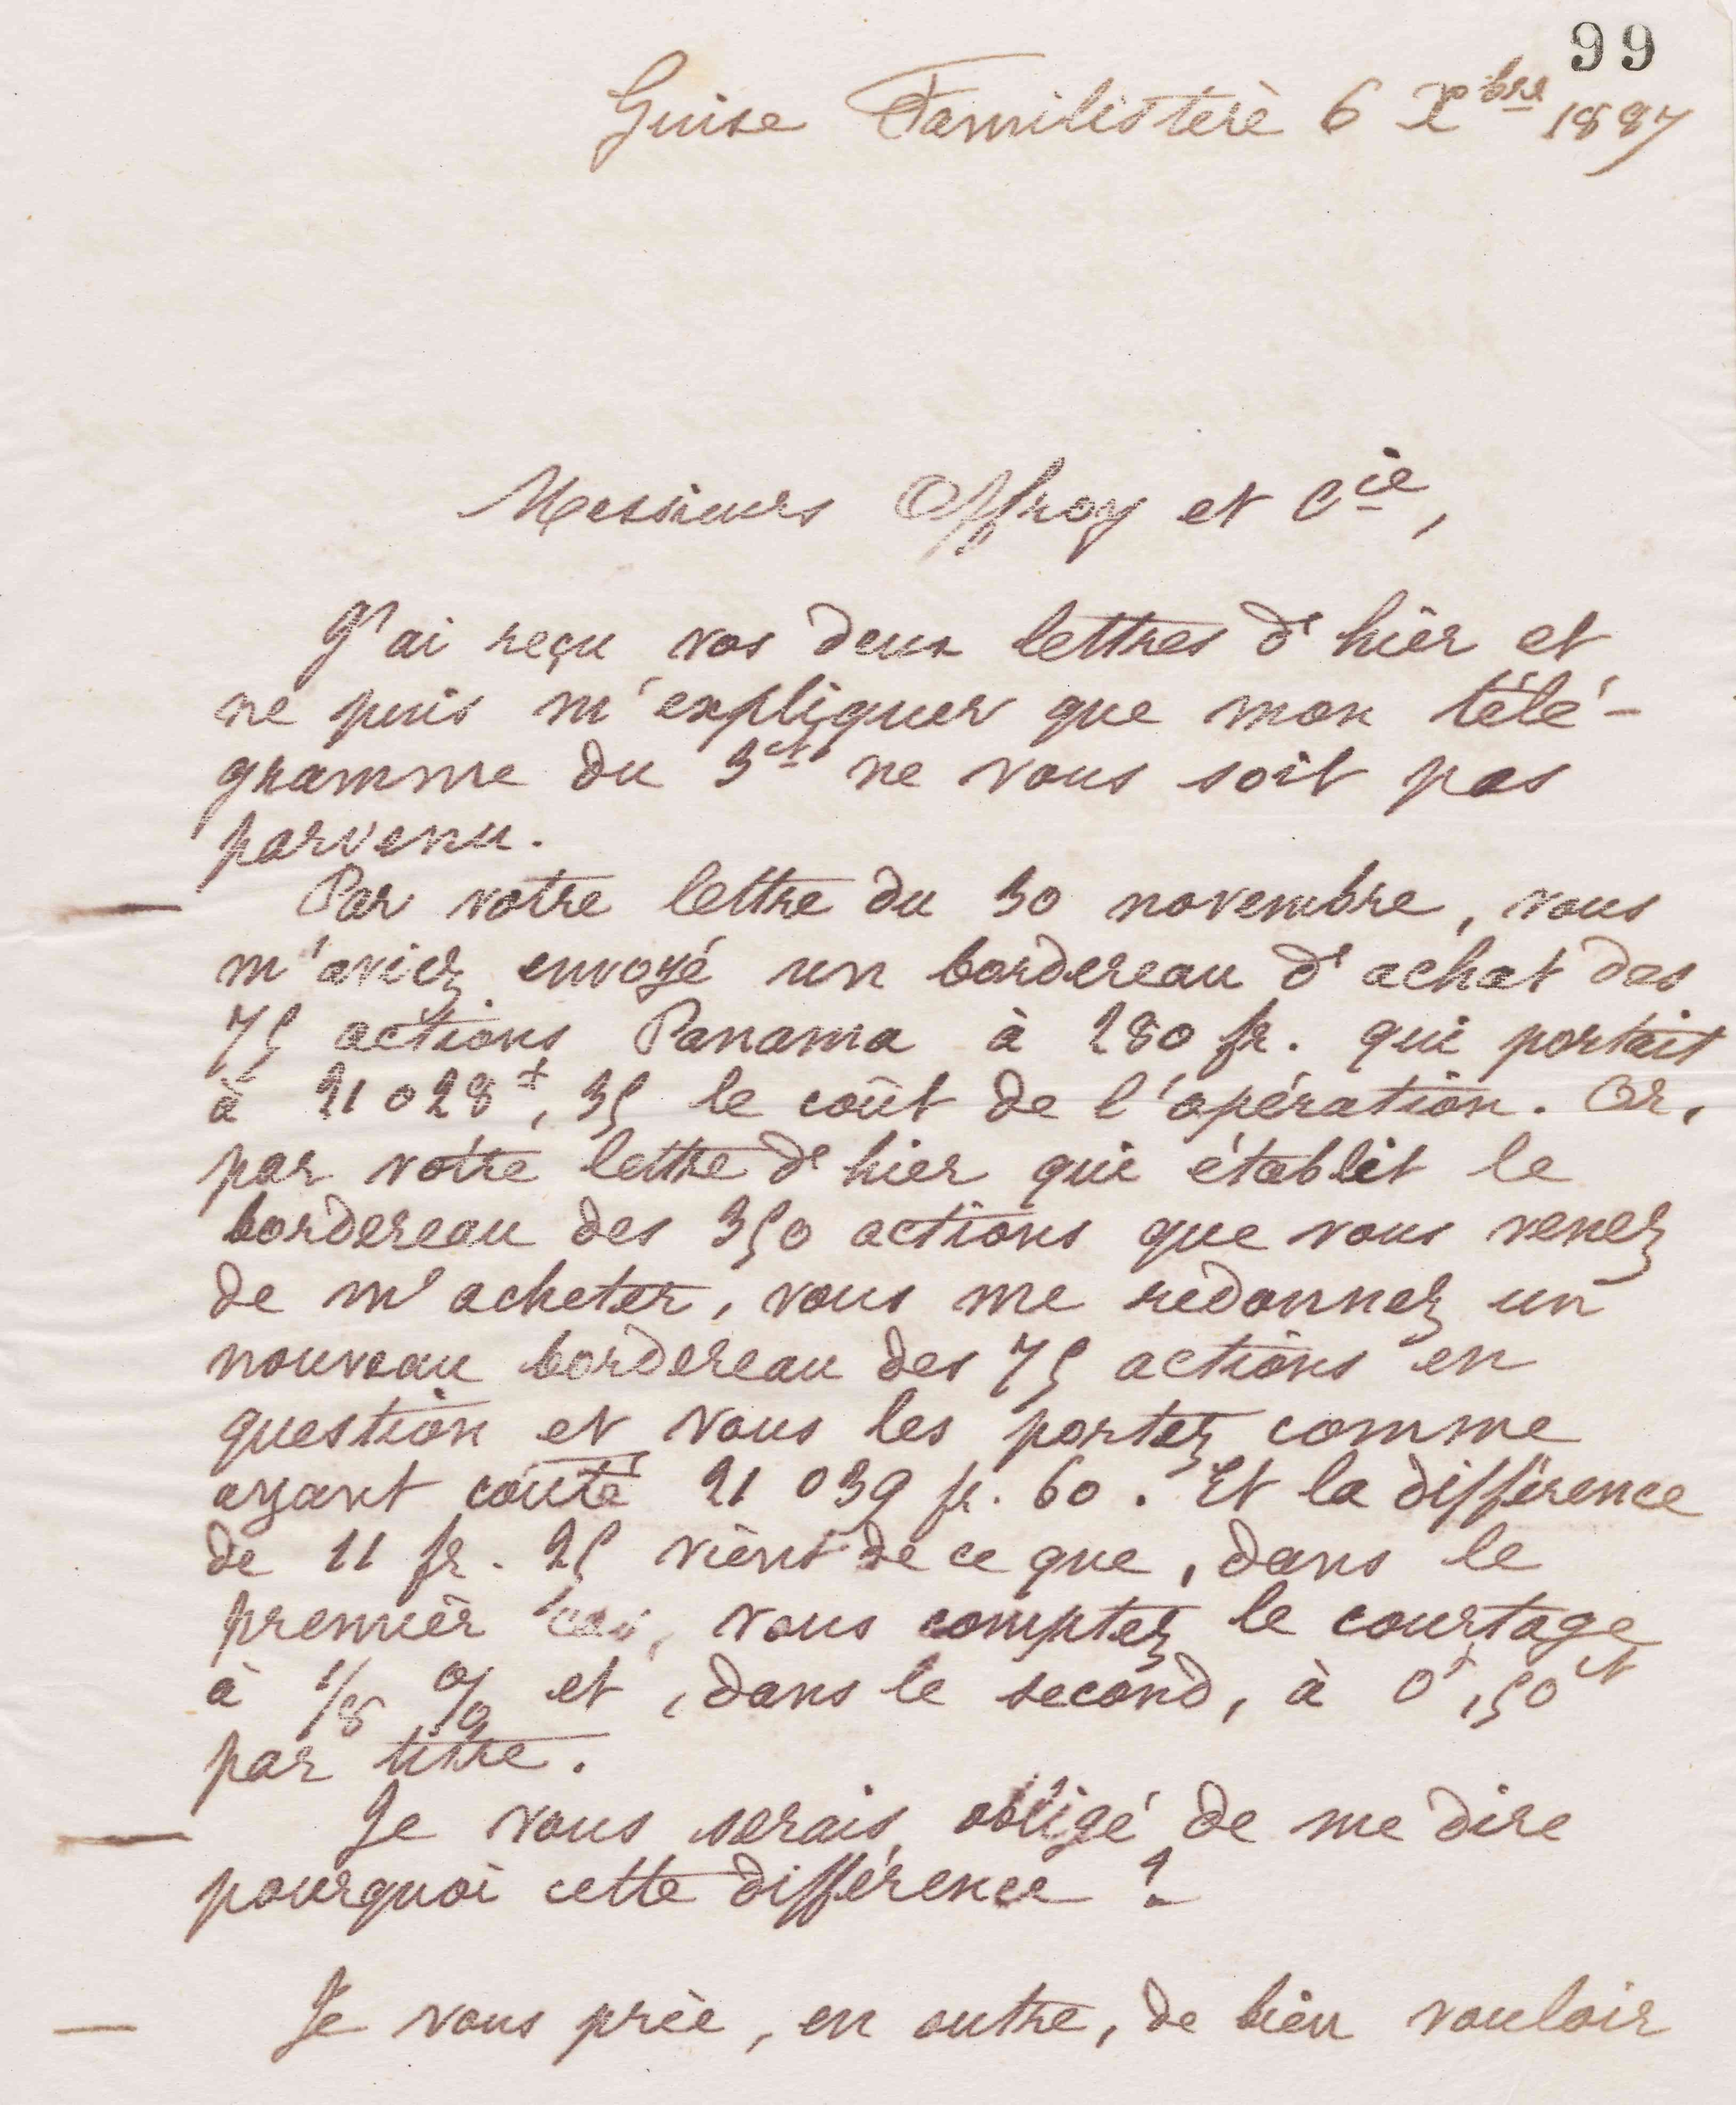 99
Guise Familistère 6 Xbre 1887
Messieurs Offroy et Cie,
J'ai reçu vos deux lettres d'hier et
ne puis m'expliquer que mon télé-
gramme du 3ct ne vous soit pas
parvenu.
Par votre lettre du 30 novembre, vous
m'aviez envoyé un bordereau d'achat des
75 actions Panama à 280 fr. qui portait
à 21 028f,35 le coût de l'opération. Or,
par votre lettre d'hier qui établit le
bordereau des 350 actions que vous venez
de m'acheter, vous me redonnez un
nouveau bordereau des 75 actions en
question et vous les portez comme
ayant coûté 21 039 fr. 60. Et la différence
de 11 fr. 25 vient de ce que, dans le
premier cas, vous comptez le courtage
à 1/8 % et, dans le second, à 0f,50ct
par titre.
Je vous serais obligé de me dire
pourquoi cette différence ?
Je vous prie, en outre, de bien vouloir